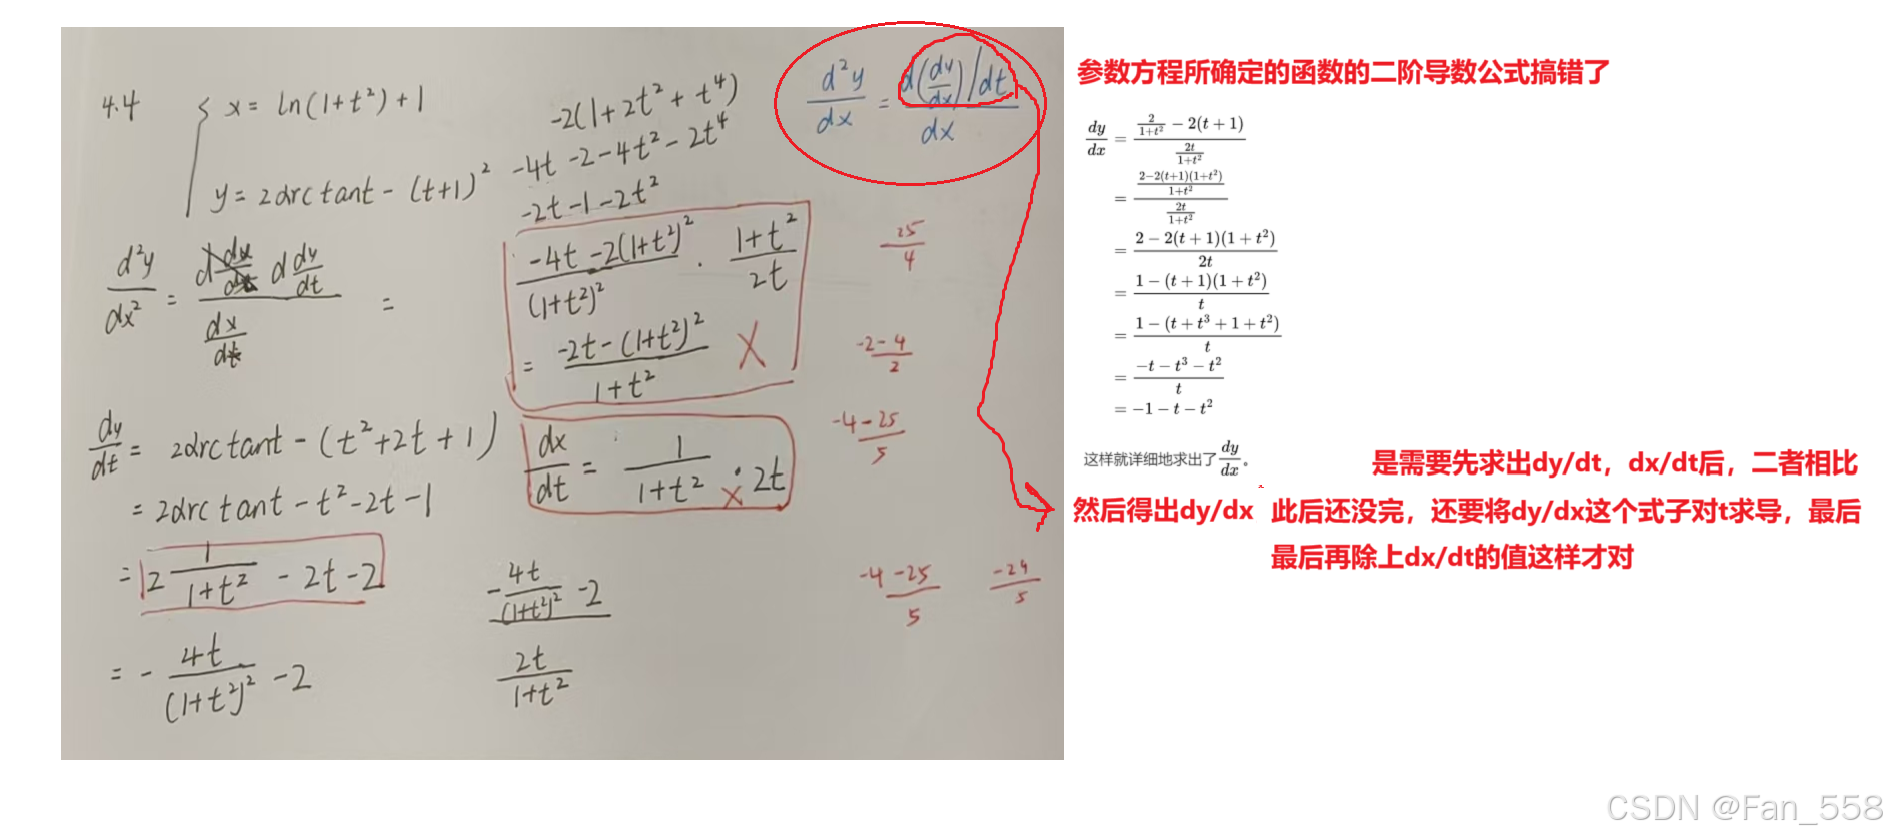 4.4 { x = ln(1+t²)+1
y = 2arctant - (t+1)²
-2(1+2t²+t⁴)
-4t -2-4t²-2t⁴
-2t-1-2t²
d²y/dx = d(dy/dx)/dt / dx
d²y/dx² = d dy/dt / dx/dt =
(-4t-2(1+t²)²)/(1+t²)² · (1+t²)/2t
= (-2t-(1+t²)²)/(1+t²) ×
25/4
(-2-4)/2
dy/dt = 2arctant - (t²+2t+1)
= 2arctant - t²-2t-1
= 2 1/(1+t²) - 2t-2
= - 4t/(1+t²)² - 2
dx/dt = 1/(1+t²) · 2t
×
(-4-25)/5
(- 4t/(1+t²)² - 2) / (2t/(1+t²))
(-4-25)/5 -29/5
参数方程所确定的函数的二阶导数公式搞错了
dy/dx = (2/(1+t²) - 2(t+1)) / (2t/(1+t²))
= ((2-2(t+1)(1+t²))/(1+t²)) / (2t/(1+t²))
= (2 - 2(t+1)(1+t²))/2t
= (1 - (t+1)(1+t²))/t
= (1 - (t+t³+1+t²))/t
= (-t-t³-t²)/t
= -1-t-t²
这样就详细地求出了dy/dx。
是需要先求出dy/dt，dx/dt后，二者相比
然后得出dy/dx 此后还没完，还要将dy/dx这个式子对t求导，最后
最后再除上dx/dt的值这样才对
CSDN @Fan_558